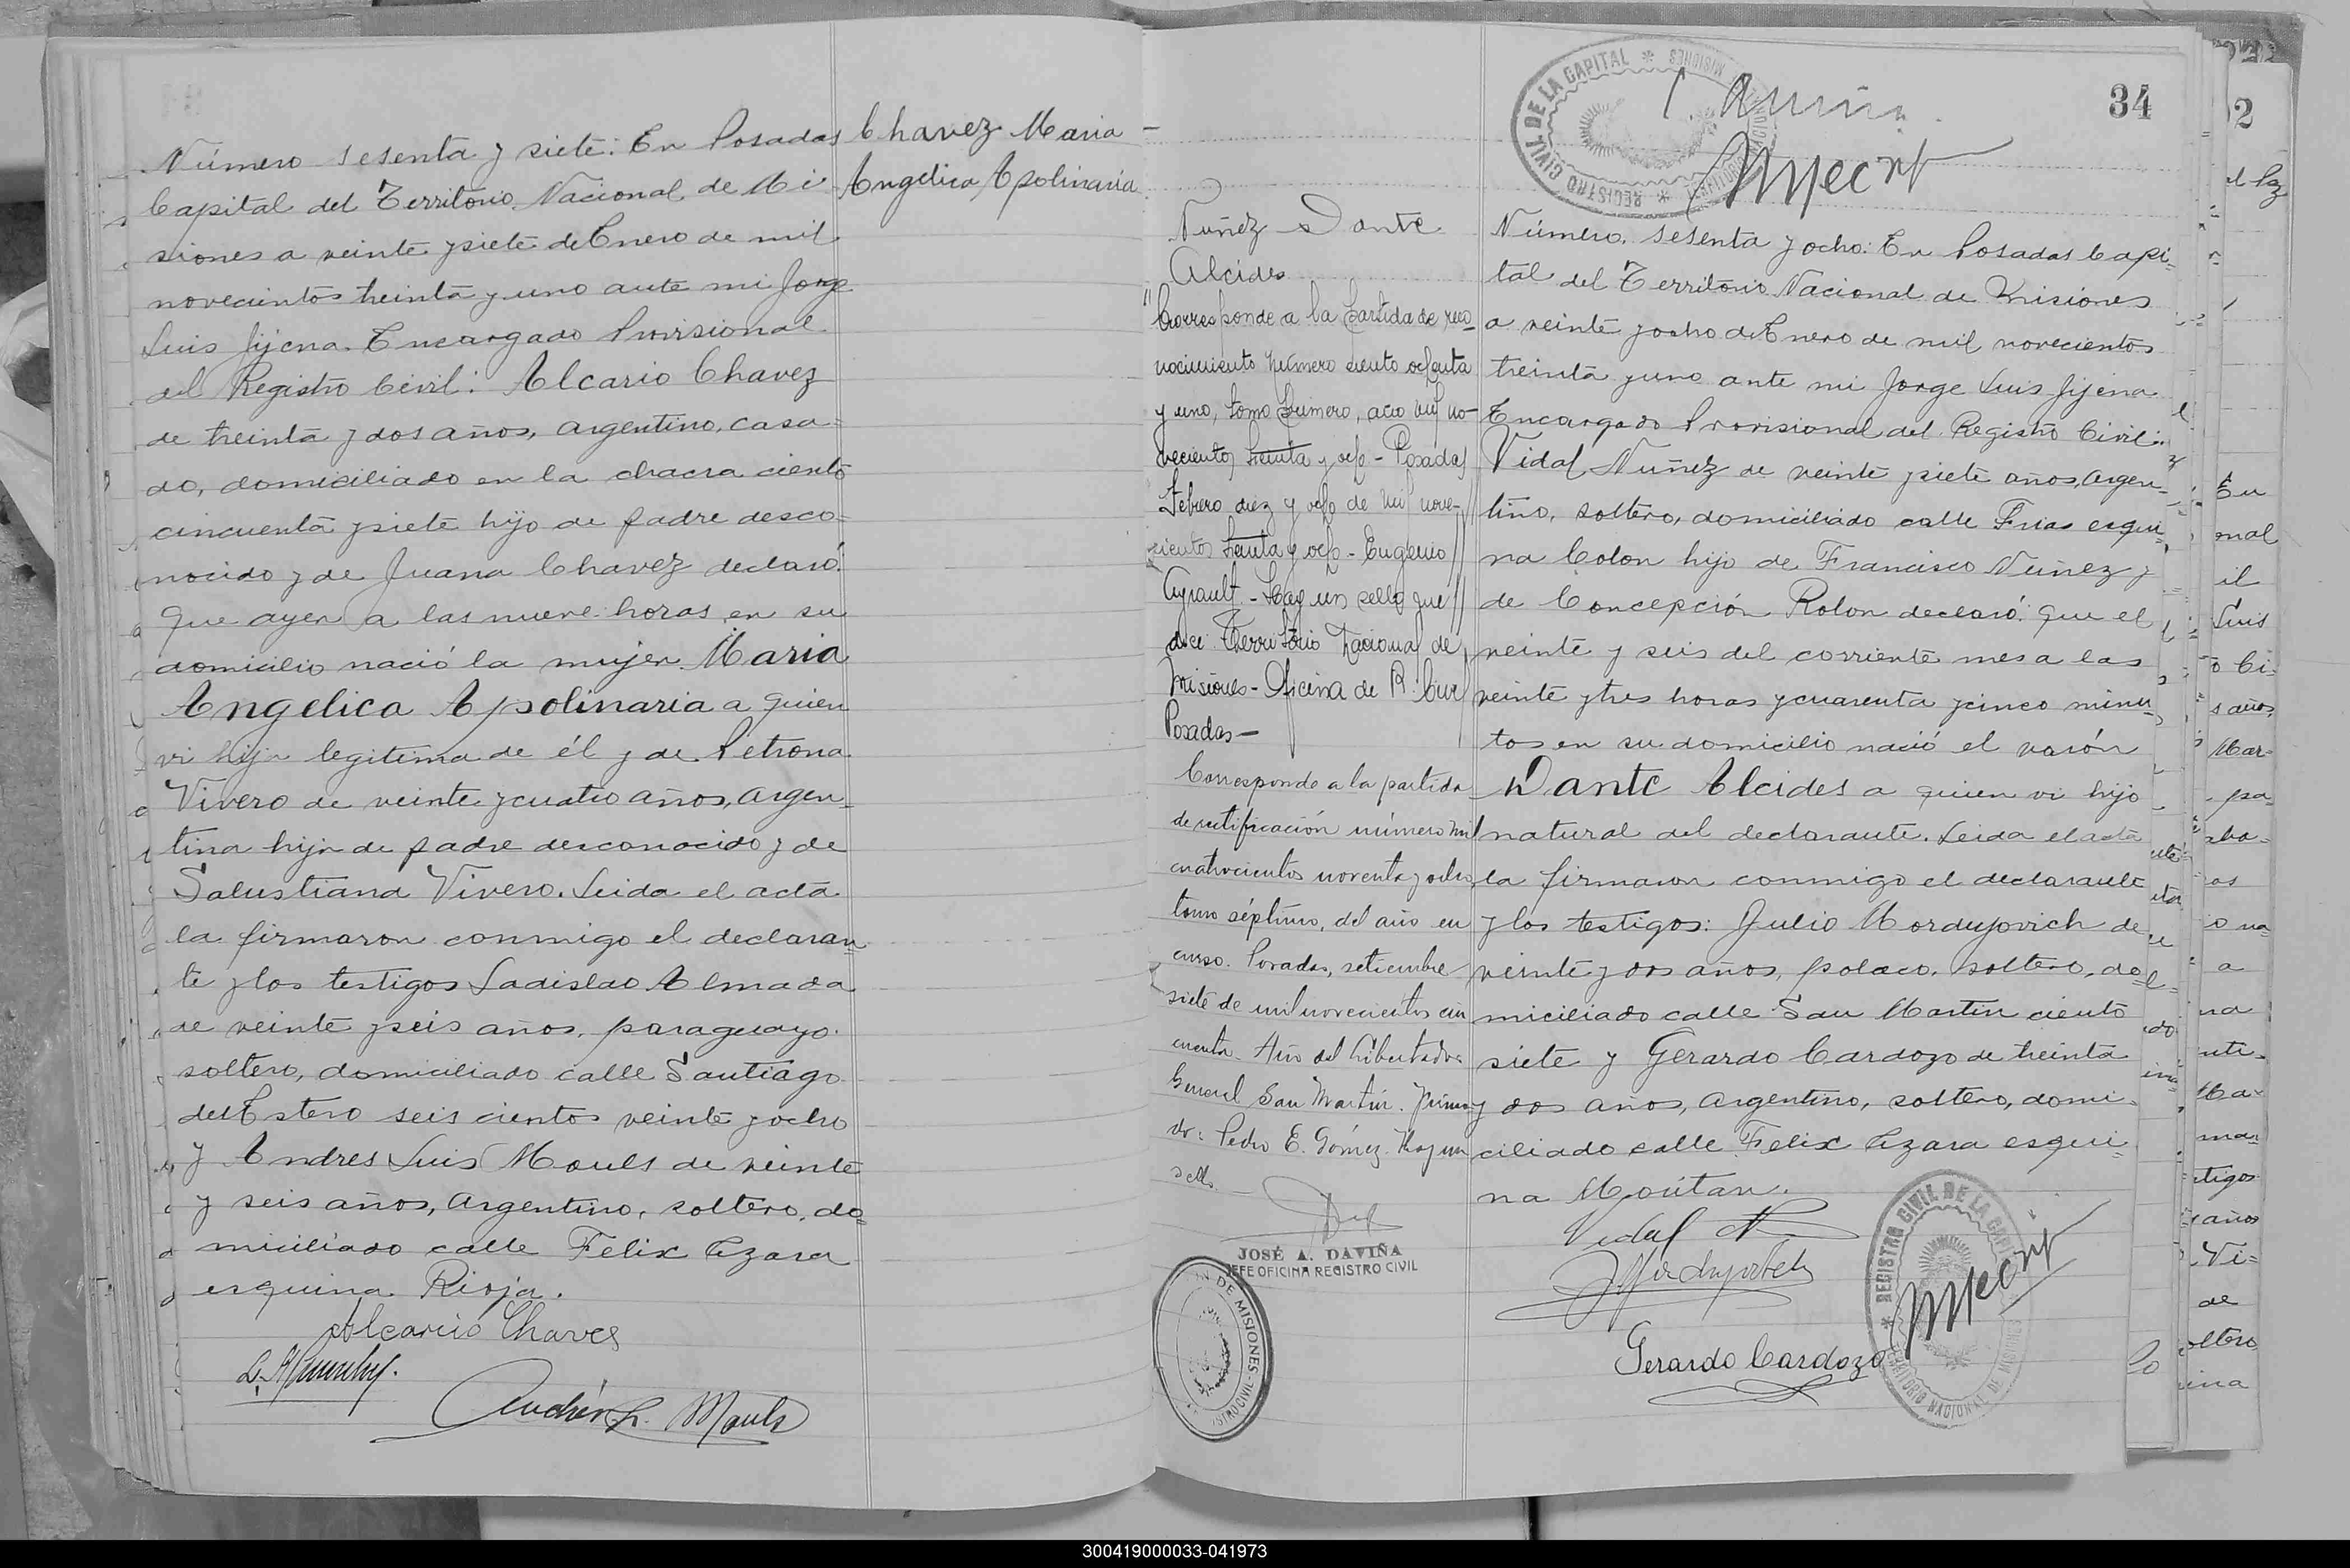 Número sesenta y siete: En Posadas
Capital del Territorio Nacional de Mi
siones a veinte y siete de Enero de mil
novecientos treinta y uno ante mi Jorge
Luis Jijena Encargado Provisional
del Registro Civil: Alcario Chavez
de treinta y dos años, argentino, casa=
do, domiciliado en la chacra ciento
cincuenta y siete hijo de padre desco=
nocido y de Juana Chavez declaró:
que ayer a las nueve horas en su
domicilio nació la mujer Maria
Angelica Apolinaria a quien
vi hija legitima de él y de Petrona
Vivero de veinte y cuatro años, argen=
tina hija de padre desconocido y de
Salustiana Vivero. Leida el acta
la firmaron conmigo el declaran=
te y los testigos Ladislao Almada
de veinte y seis años, paraguayo
soltero, domiciliado calle Santiago
del Estero seis cientos veinte y ocho
y Andres Luis Mouls de veinte
y seis años, argentino, soltero, do=
miciliado calle Felix Azara
esquina Rioja.
Alcario Chaves
Andrés L. Mouls
Chavez Maria
Angelica Apolinaria
34
REGISTRO CIVIL DE LA CAPITAL * TERRITORIO NACIONAL DE MISIONES *
Nuñez Dante
Alcides
"Corresponde a la partida de reco=
nocimiento número ciento ochenta
y uno, tomo primero, año mil no=
vecientos treinta y ocho - Posadas
Febrero diez y ocho de mil nove=
cientos treinta y ocho - Eugenio
Ayrault - Hay un sello que
dice: Territorio Nacional de
Misiones - Oficina de R. Civil
Posadas -
Corresponde a la partida
de rectificación número mil
cuatrocientos noventa y ocho,
tomo séptimo, del año en
curso. Posadas, setiembre
siete de mil novecientos cin
cuenta. Año del Libertador
General San Martín. Firma
do: Pedro E. Gómez. Hay un
sello.
JOSÉ A. DAVIÑA
JEFE OFICINA REGISTRO CIVIL
DE MISIONES
Número. sesenta y ocho: En Posadas Capi=
tal del Territorio Nacional de Misiones
a veinte y ocho de Enero de mil novecientos
treinta y uno ante mi Jorge Luis Jijena
Encargado Provisional del Registro Civil:
Vidal Nuñez de veinte y siete años, argen=
tino, soltero, domiciliado calle Frias esqui=
na Colon hijo de Francisco Nuñez y
de Concepción Rolon declaró: que el
veinte y seis del corriente mes a las
veinte y tres horas y cuarenta y cinco minu=
tos en su domicilio nació el varón
Dante Alcides a quien vi hijo
natural del declarante. Leida el acta
la firmaron conmigo el declarante
y los testigos: Julio Mordujovich de
veinte y dos años, polaco, soltero, do=
miciliado calle San Martin ciento
siete y Gerardo Cardozo de treinta
y dos años, argentino, soltero, domi=
ciliado calle Felix Azara esqui=
na Moritan.
Vidal N
Gerardo Cardozo
REGISTRO CIVIL DE LA CAPITAL * TERRITORIO NACIONAL DE MISIONES
300419000033-041973